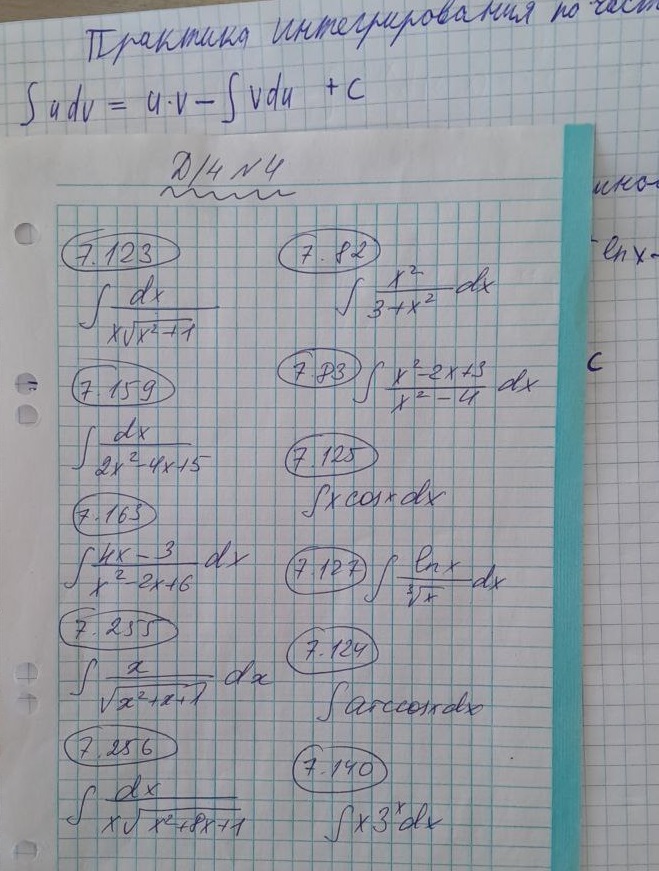 Практика интегрирования по част
∫ u dv = u·v − ∫ v du + C
Д/ч №4
7.123
∫ dx / (x√(x²+1))
7.159
∫ dx / (2x²−4x+5)
7.163
∫ (4x−3) / (x²−2x+6) dx
7.255
∫ x / √(x²+x+1) dx
7.256
∫ dx / (x√(x²+8x+1))
7.82
∫ x² / (3+x²) dx
7.83 ∫ (x²−2x+3) / (x²−4) dx
7.125
∫ x cosx dx
7.127 ∫ lnx / ³√x dx
7.124
∫ arccosx dx
7.140
∫ x 3ˣ dx
lnx-
C